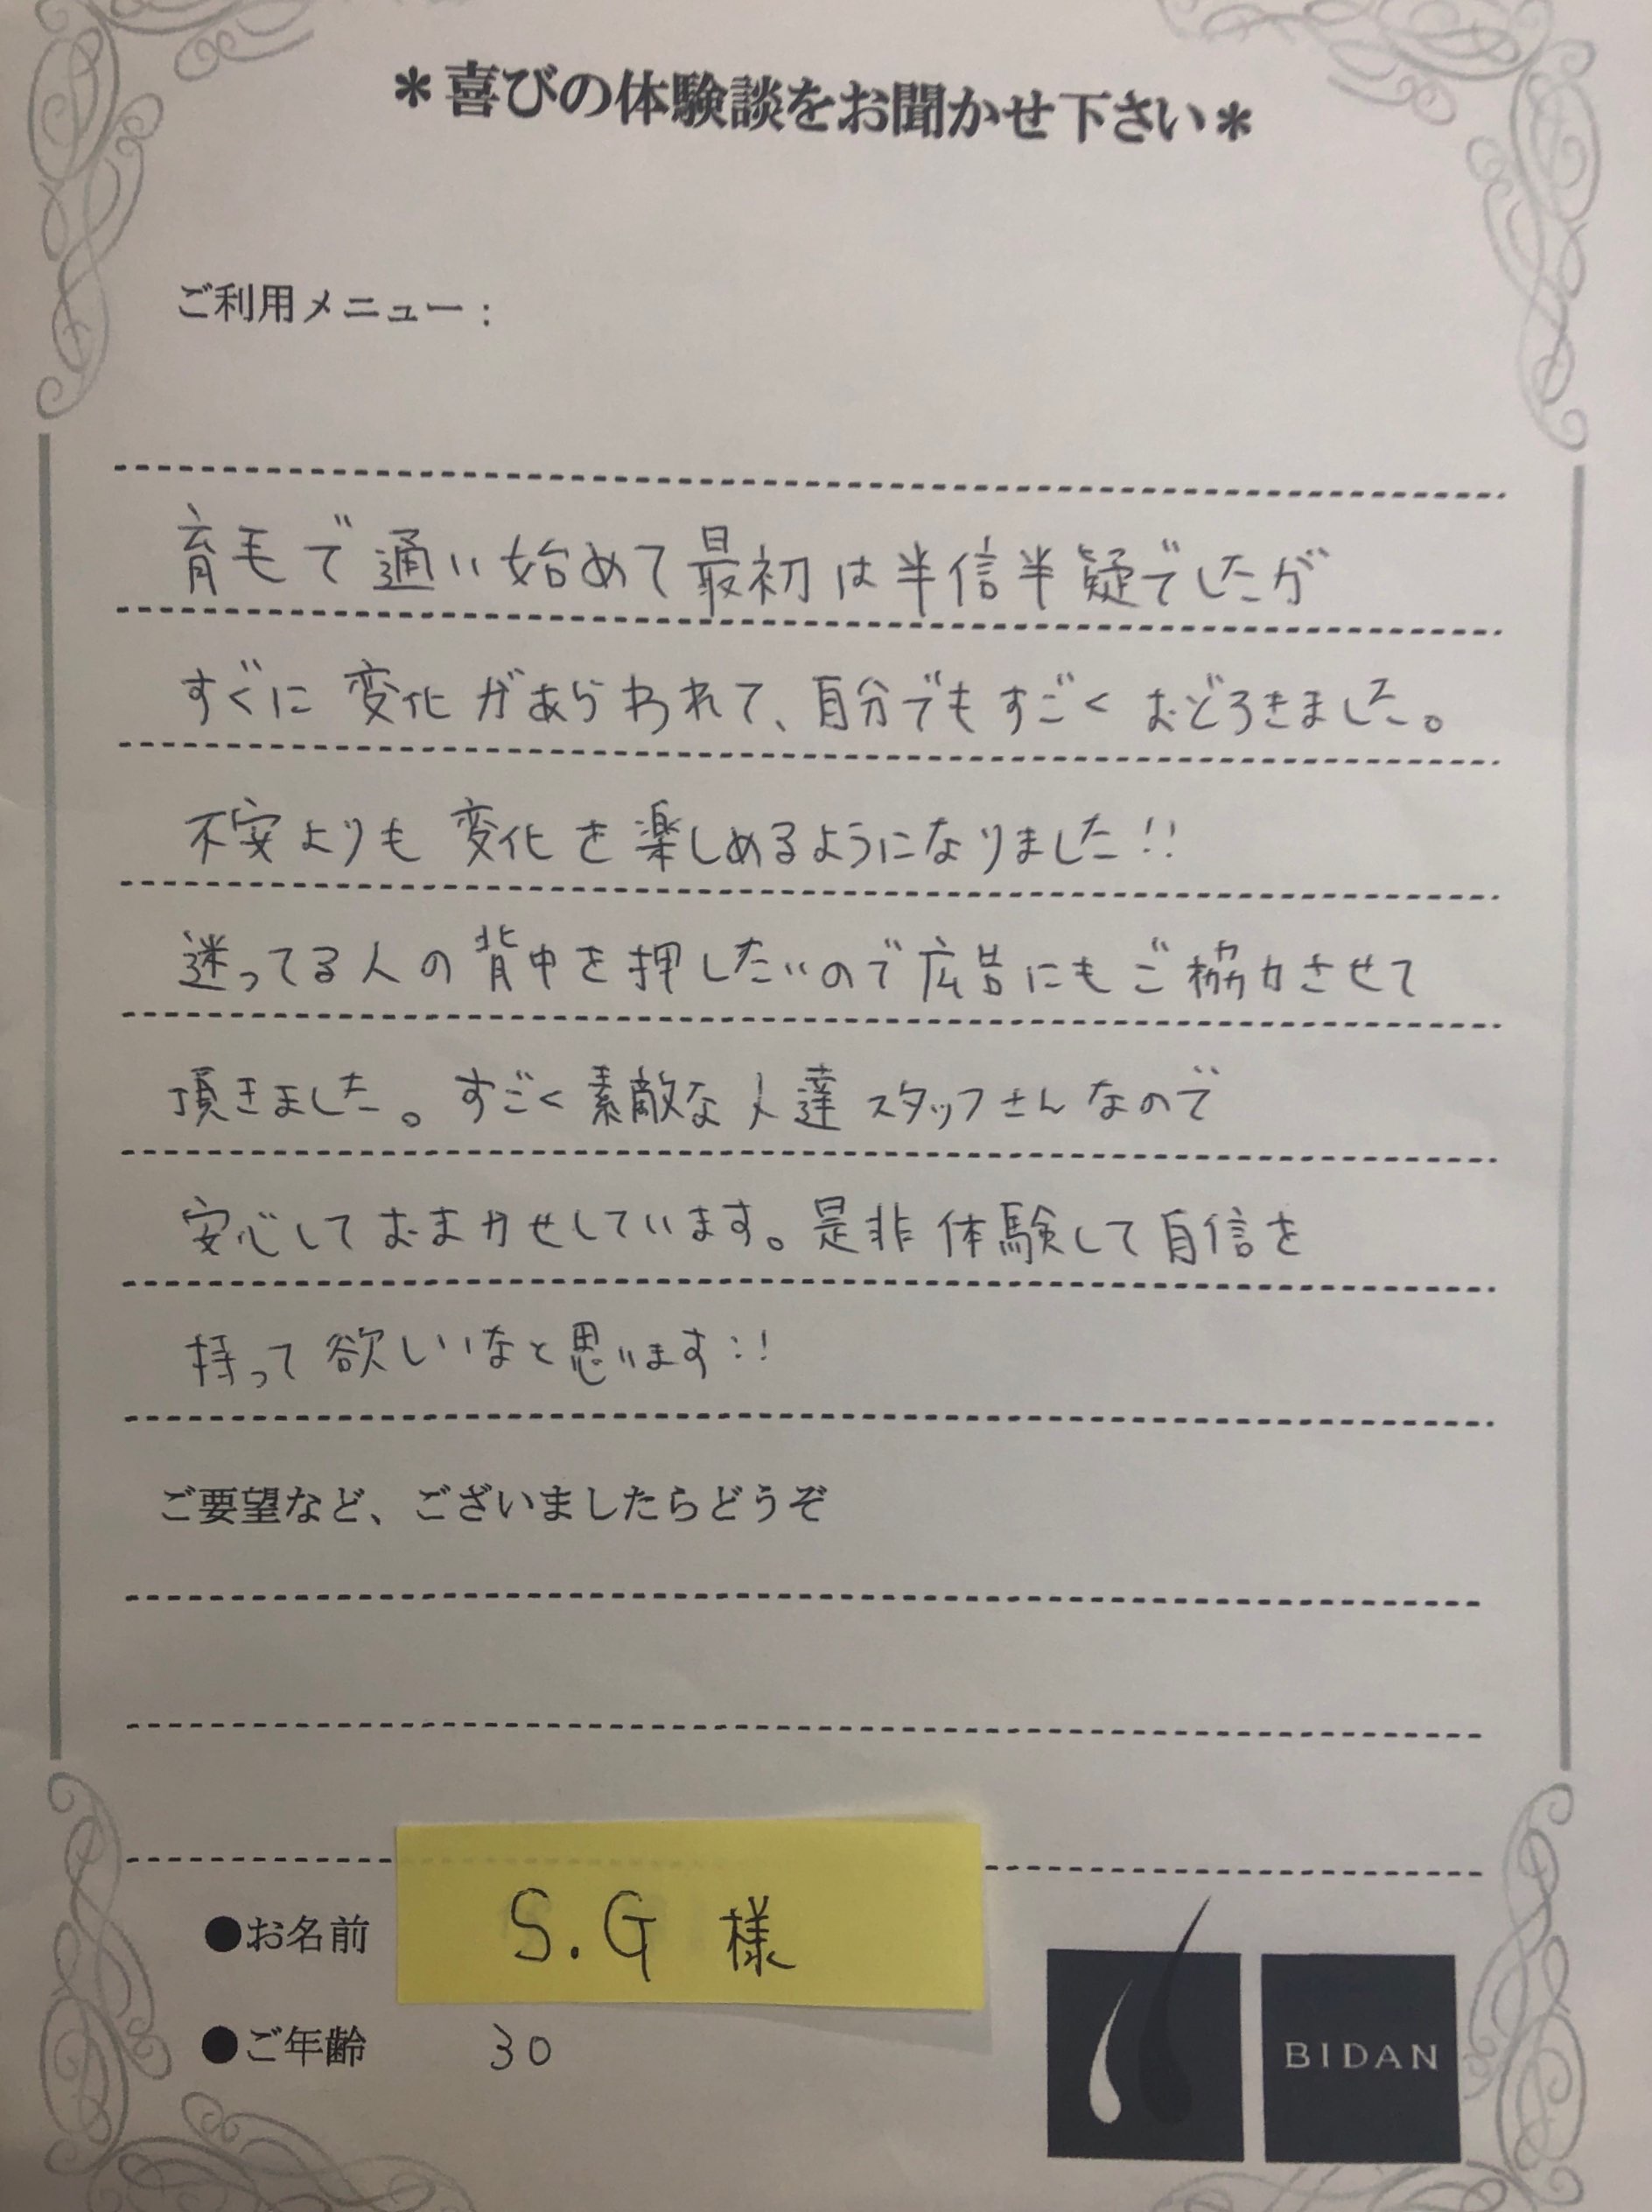 ＊喜びの体験談をお聞かせ下さい＊
ご利用メニュー：
育毛で通い始めて最初は半信半疑でしたが
すぐに変化があらわれて、自分でもすごくおどろきました。
不安よりも変化を楽しめるようになりました!!
迷ってる人の背中を押したいので広告にもご協力させて
頂きました。すごく素敵な人達スタッフさんなので
安心しておまかせしています。是非体験して自信を
持って欲しいなと思います!!
ご要望など、ございましたらどうぞ
●お名前 S.G 様
●ご年齢 30
BIDAN